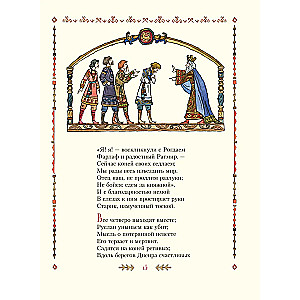 «Я! я! — воскликнули с Рогдаем
Фарлаф и радостный Ратмир. —
Сейчас коней своих седлаем;
Мы рады весь изъездить мир.
Отец наш, не продлим разлуки;
Не бойся: едем за княжной».
И с благодарностью немой
В слезах к ним простирает руки
Старик, измученный тоской.
Все четверо выходят вместе;
Руслан уныньем как убит;
Мысль о потерянной невесте
Его терзает и мертвит.
Садятся на коней ретивых;
Вдоль берегов Днепра счастливых